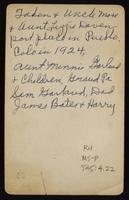 Taken & Uncle Mose
& Aunt Lizzie Daven-
port place in Pueblo,
Colo in 1924,
Aunt Minnie Garland
& Children, Grand Pa
Sim Garland, Dad
James Bates & Harry
RH
MS-P